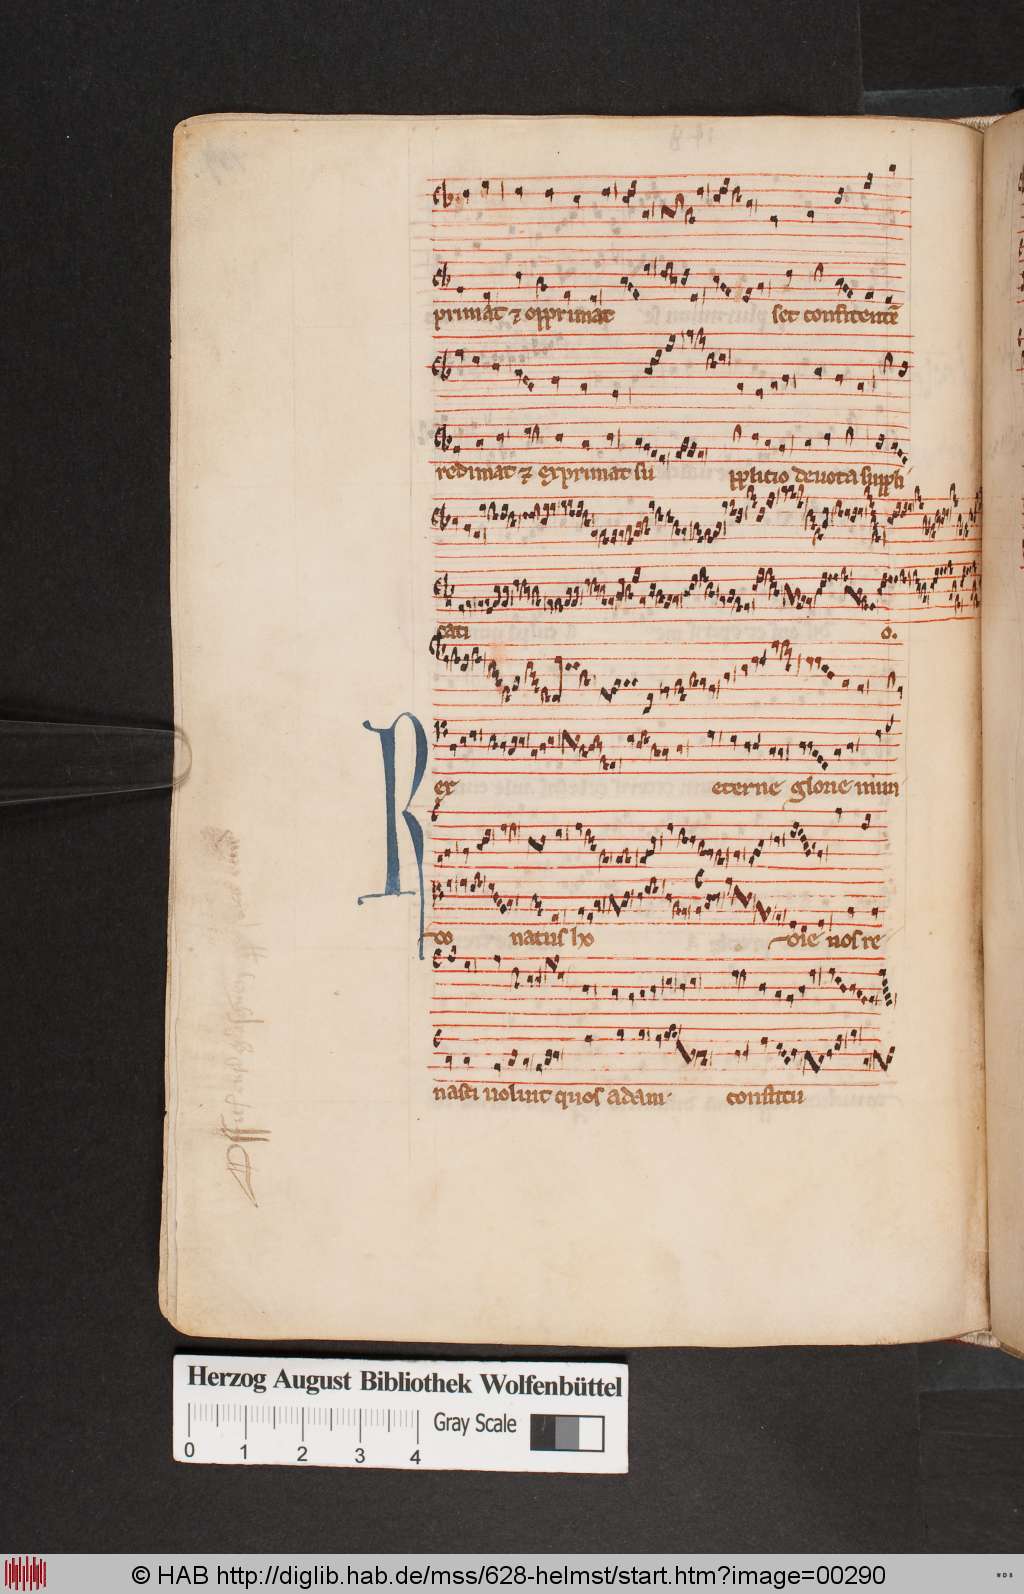 primat ⁊ opprimat set confitentē
redimat ⁊ exprimat su pplicio deuota suppli
cati o.
Rex eterne glorie mun
do natus ho die nos re
nasci uoluit quos adam constitu
Herzog August Bibliothek Wolfenbüttel
Gray Scale
0 1 2 3 4
© HAB http://diglib.hab.de/mss/628-helmst/start.htm?image=00290